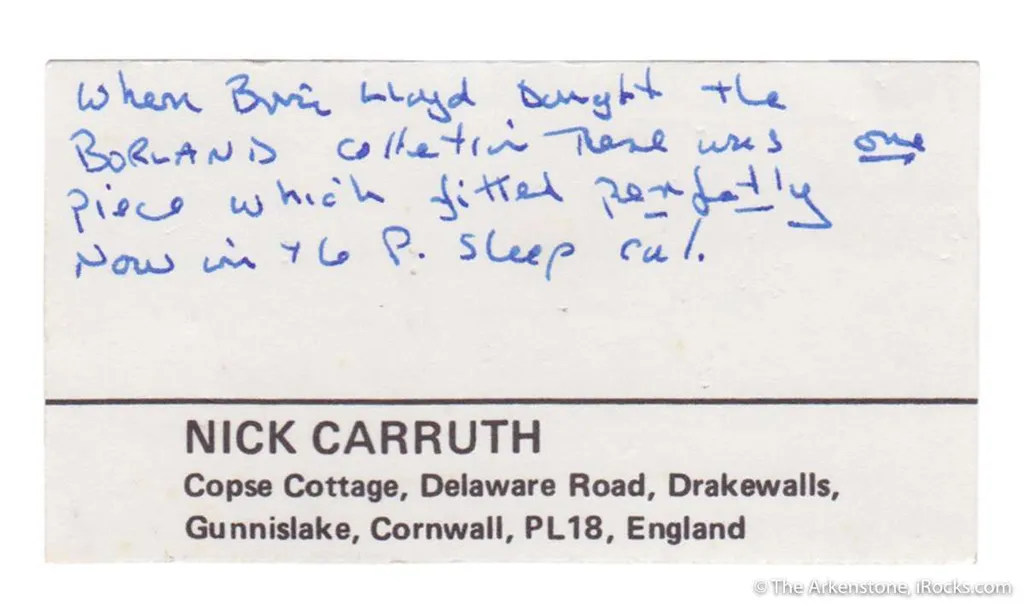 When Brian Lloyd bought the
BORLAND collection There was one
piece which fitted perfectly
Now in the P. Sleep col.
NICK CARRUTH
Copse Cottage, Delaware Road, Drakewalls,
Gunnislake, Cornwall, PL18, England
© The Arkenstone, iRocks.com